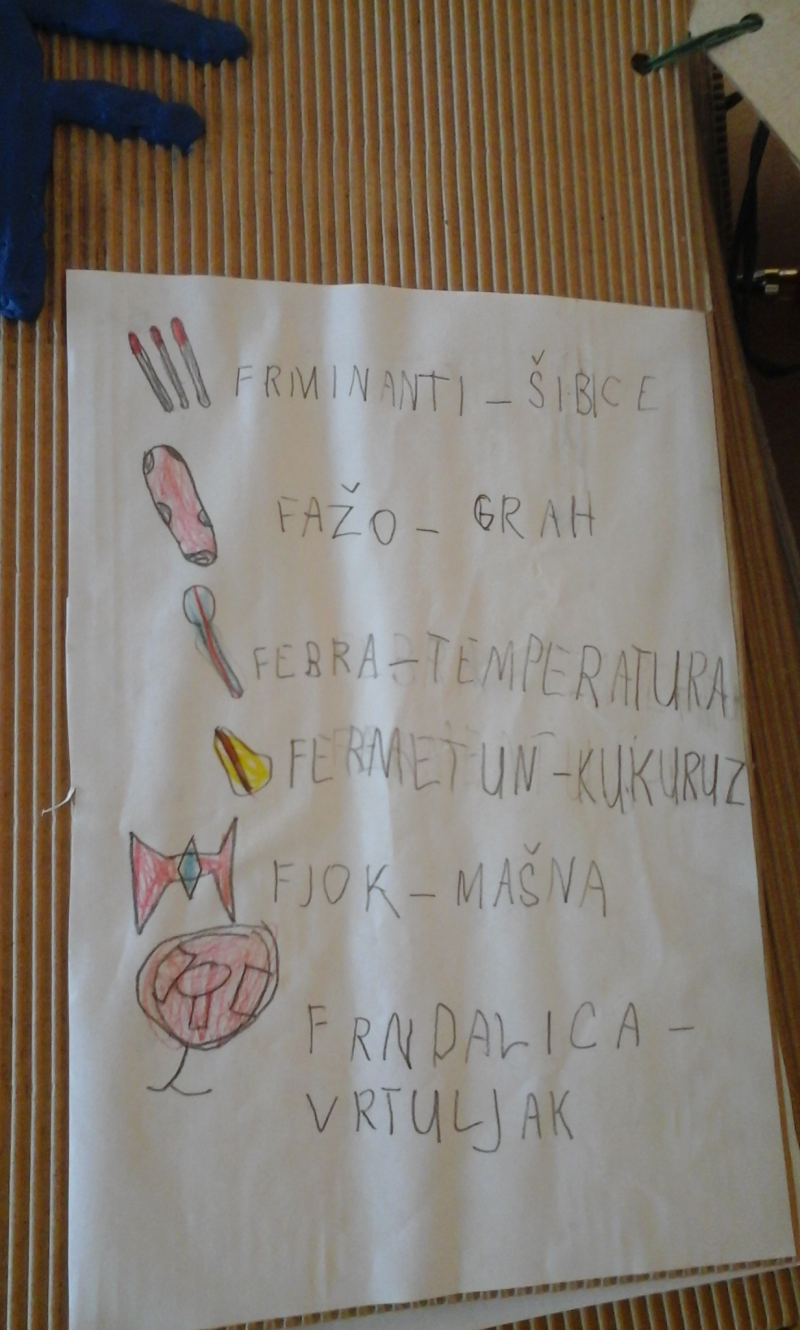 F
FRMINANTI – ŠIBICE
FAŽO – GRAH
FEBRA – TEMPERATURA
FERMETUN – KUKURUZ
FJOK – MAŠNA
FRNDALICA –
VRTULJAK